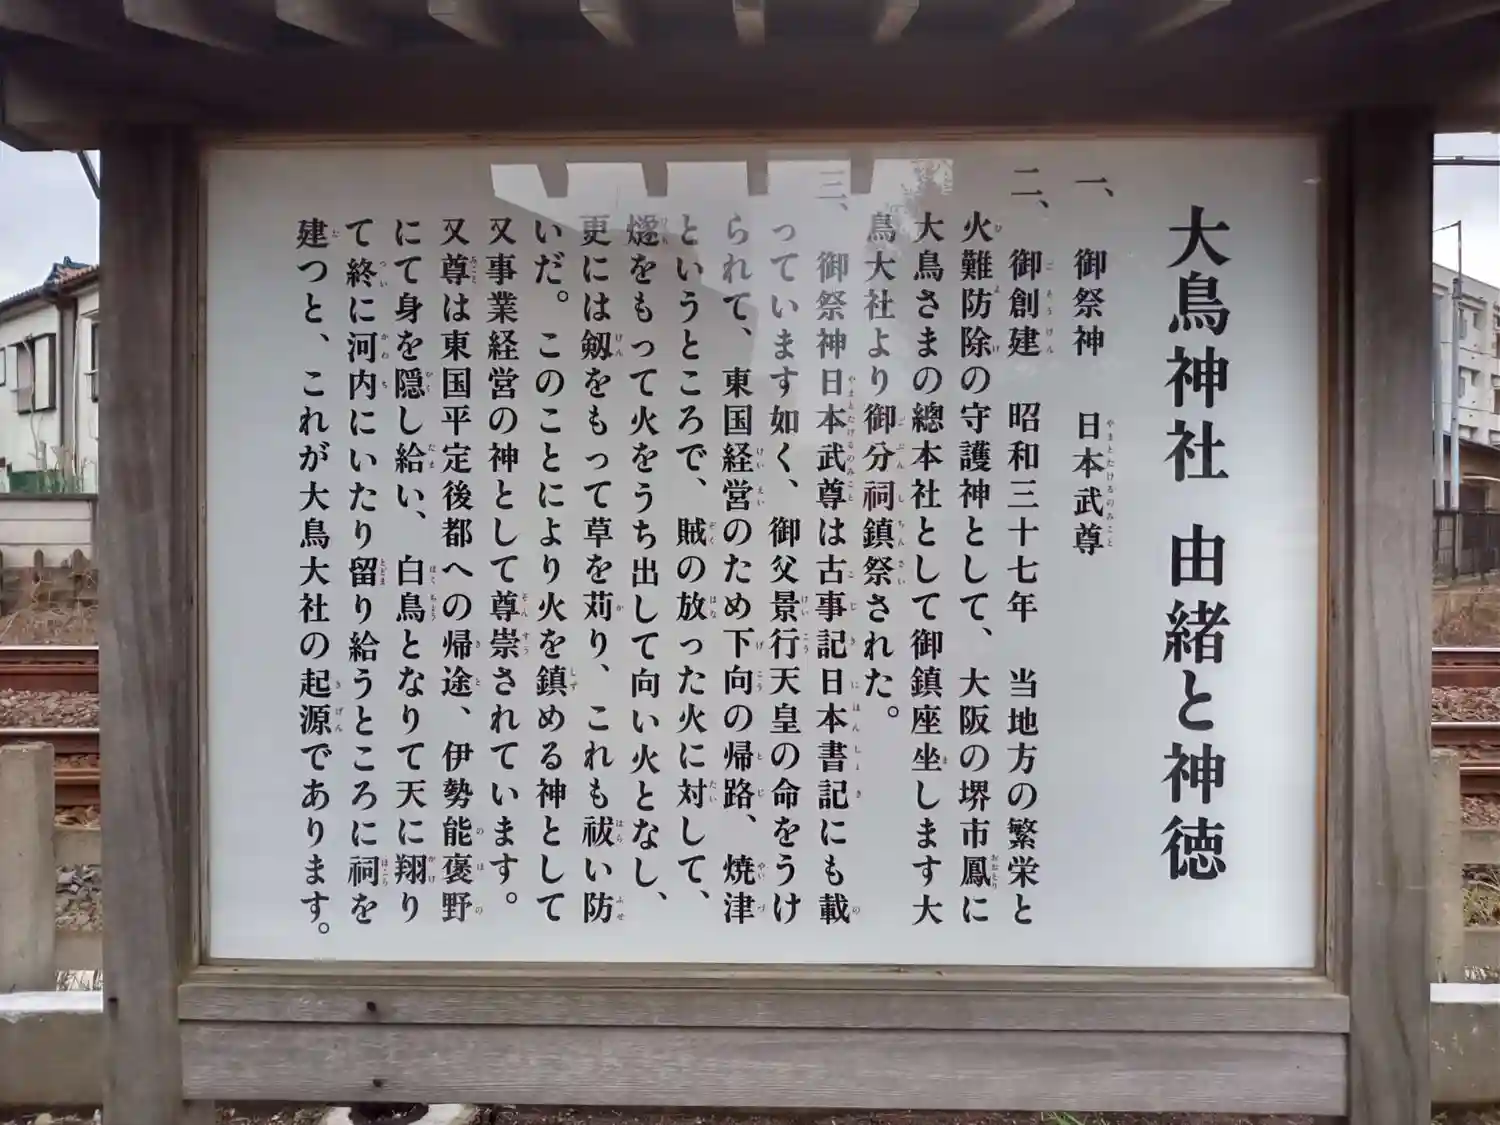 大鳥神社 由緒と神徳
一、 御祭神 日本武尊
二、 御創建 昭和三十七年 当地方の繁栄と
火難防除の守護神として、大阪の堺市鳳に
大鳥さまの總本社として御鎮座坐します大
鳥大社より御分祠鎮祭された。
三、 御祭神日本武尊は古事記日本書記にも載
っています如く、御父景行天皇の命をうけ
られて、東国経営のため下向の帰路、焼津
というところで、賊の放った火に対して、
燧をもって火をうち出して向い火となし、
更には剱をもって草を苅り、これも祓い防
いだ。このことにより火を鎮める神として
又事業経営の神として尊崇されています。
又尊は東国平定後都への帰途、伊勢能褒野
にて身を隠し給い、白鳥となりて天に翔り
て終に河内にいたり留り給うところに祠を
建つと、これが大鳥大社の起源であります。